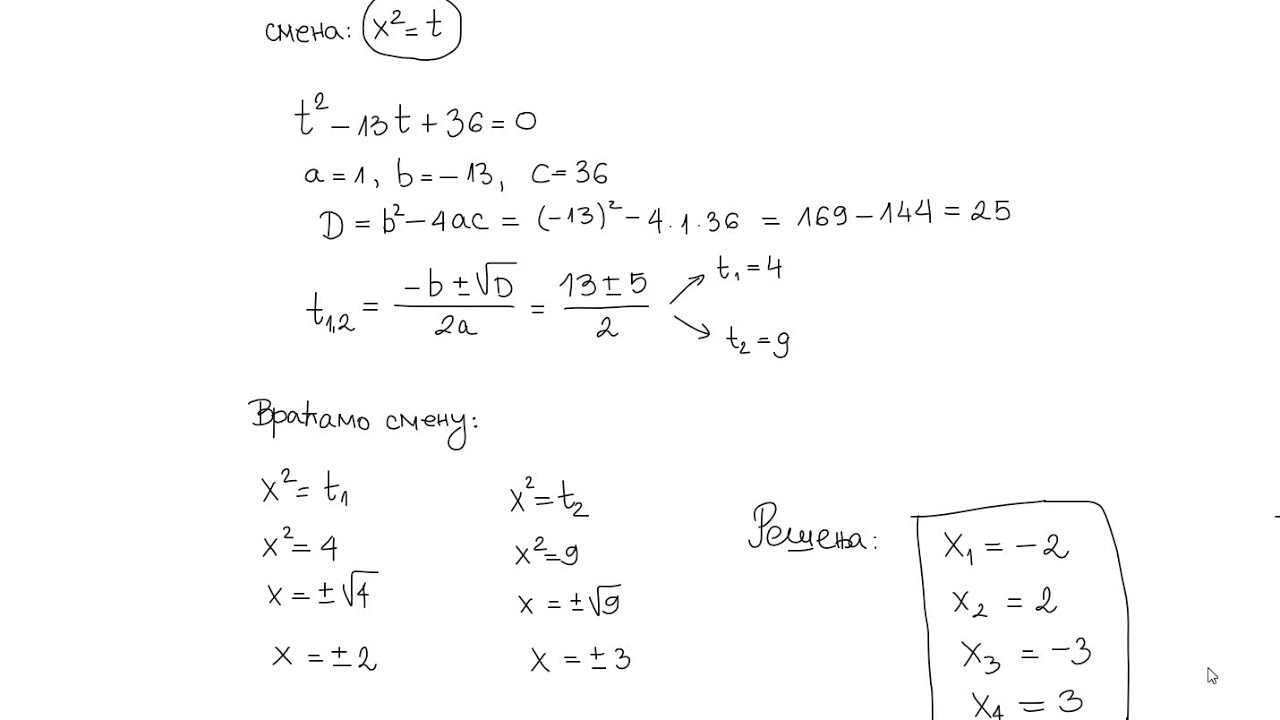 смена: x² = t
t² − 13t + 36 = 0
a = 1, b = − 13, c = 36
D = b² − 4ac = (−13)² − 4·1·36 = 169 − 144 = 25
t₁,₂ = (−b ± √D)/(2a) = (13 ± 5)/2
t₁ = 4
t₂ = 9
Враћамо смену:
x² = t₁
x² = 4
x = ±√4
x = ± 2
x² = t₂
x² = 9
x = ±√9
x = ± 3
Решења:
x₁ = −2
x₂ = 2
x₃ = −3
x₄ = 3